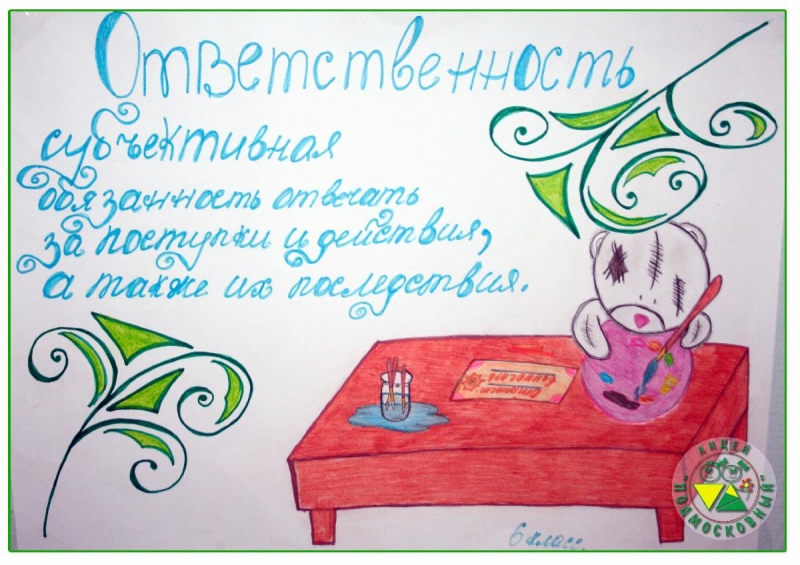 Ответственность
субъективная
обязанность отвечать
за поступки и действия,
а также их последствия.
6 класс.
ЛИЦЕЙ
"ПОДМОСКОВНЫЙ"